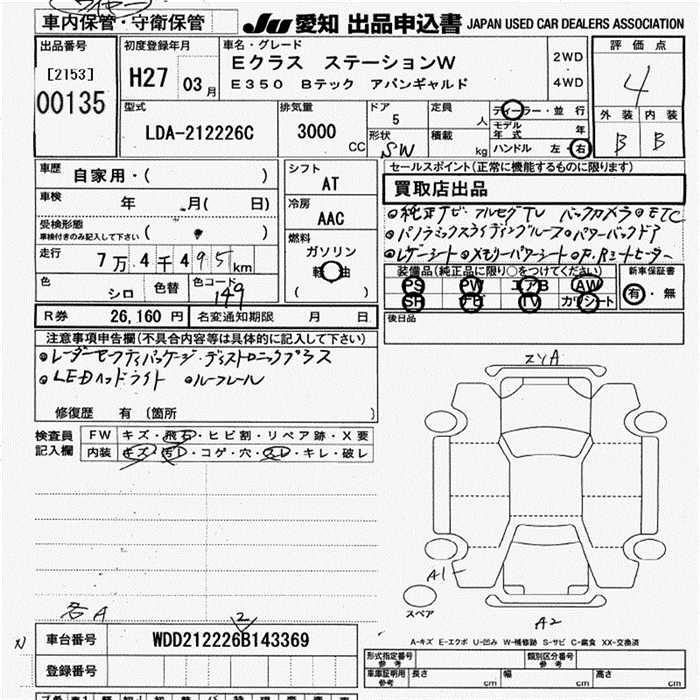 車内保管・守衛保管
JU 愛知 出品申込書 JAPAN USED CAR DEALERS ASSOCIATION
出品番号
[2153]
00135
初度登録年月
H27 03 月
車名・グレード
Eクラス ステーションW
E350 Bテック アバンギャルド
2WD
4WD
評価点
4
外装 内装
B B
型式
LDA-212226C
排気量
3000 CC
ドア 5
形状 SW
定員 人
積載 kg
ディーラー・並行
モデル年式 年
ハンドル 左・右
車歴 自家用・( )
車検 年 月( 日)
受検形態
車検付きのみ記入して下さい ( )
走行 7万 4千 495 km
色 シロ 色替 色コード 149
シフト AT
冷房 AAC
燃料 ガソリン
軽油
( )
R券 26,160 円 名変通知期限 月 日
セールスポイント(正常に機能するものに限ります)
買取店出品
◎純正ナビ・フルセグTV バックカメラ◎ETC
◎パノラミックスライディングルーフ◎パワーバックドア
◎レザーシート◎メモリーパワーシート◎F.Rシートヒーター
装備品(純正品に限り○をつけてください)
PS PW エアB AW
SR TV カワシート
新車保証書
有・無
後日品
注意事項申告欄(不具合内容等は具体的に記入して下さい)
◎レーダーセーフティパッケージ・ディストロニックプラス
◎LEDヘッドライト ◎ルーフレール
修復歴 有 (箇所 )
検査員記入欄
FW キズ・飛石・ヒビ割・リペア跡・X要
内装 キズ・汚レ・コゲ・穴・スレ・キレ・破レ
ZYA
A1
A2
スペア
A-キズ E-エクボ U-凹み W-補修跡 S-サビ C-腐食 XX-交換済
各A
2
車台番号 WDD212226B143369
登録番号
形式指定番号 参考
類別区分番号 参考
車庫証明用 参考 長さ cm 幅 cm 高さ cm